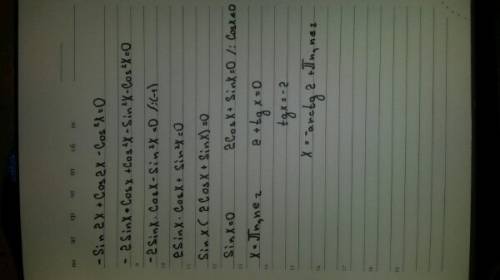 - Sin 2x + Cos 2x - Cos²x = 0
- 2Sinx * Cosx + Cos²x - Sin²x - Cos²x = 0
- 2Sinx · Cosx - Sin²x = 0 /:(-1)
2Sinx · Cosx + Sin²x = 0
Sinx ( 2Cosx + Sinx) = 0
Sinx = 0 2Cosx + Sinx = 0 /: Cosx ≠ 0
x = πn, n∈z 2 + tg x = 0
tgx = -2
x = -arctg 2 + πn, n∈z